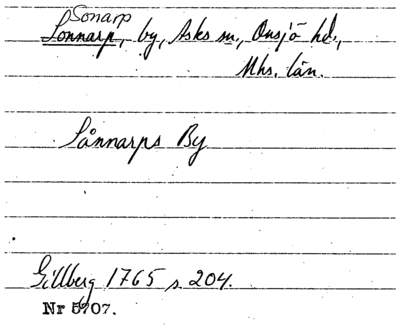 Sonarp
Sonnarp, by, Asks sn, Onsjö hd.,
Mhs. län.
Sånnarps By
Gillberg 1765 s. 204.
Nr 5707.